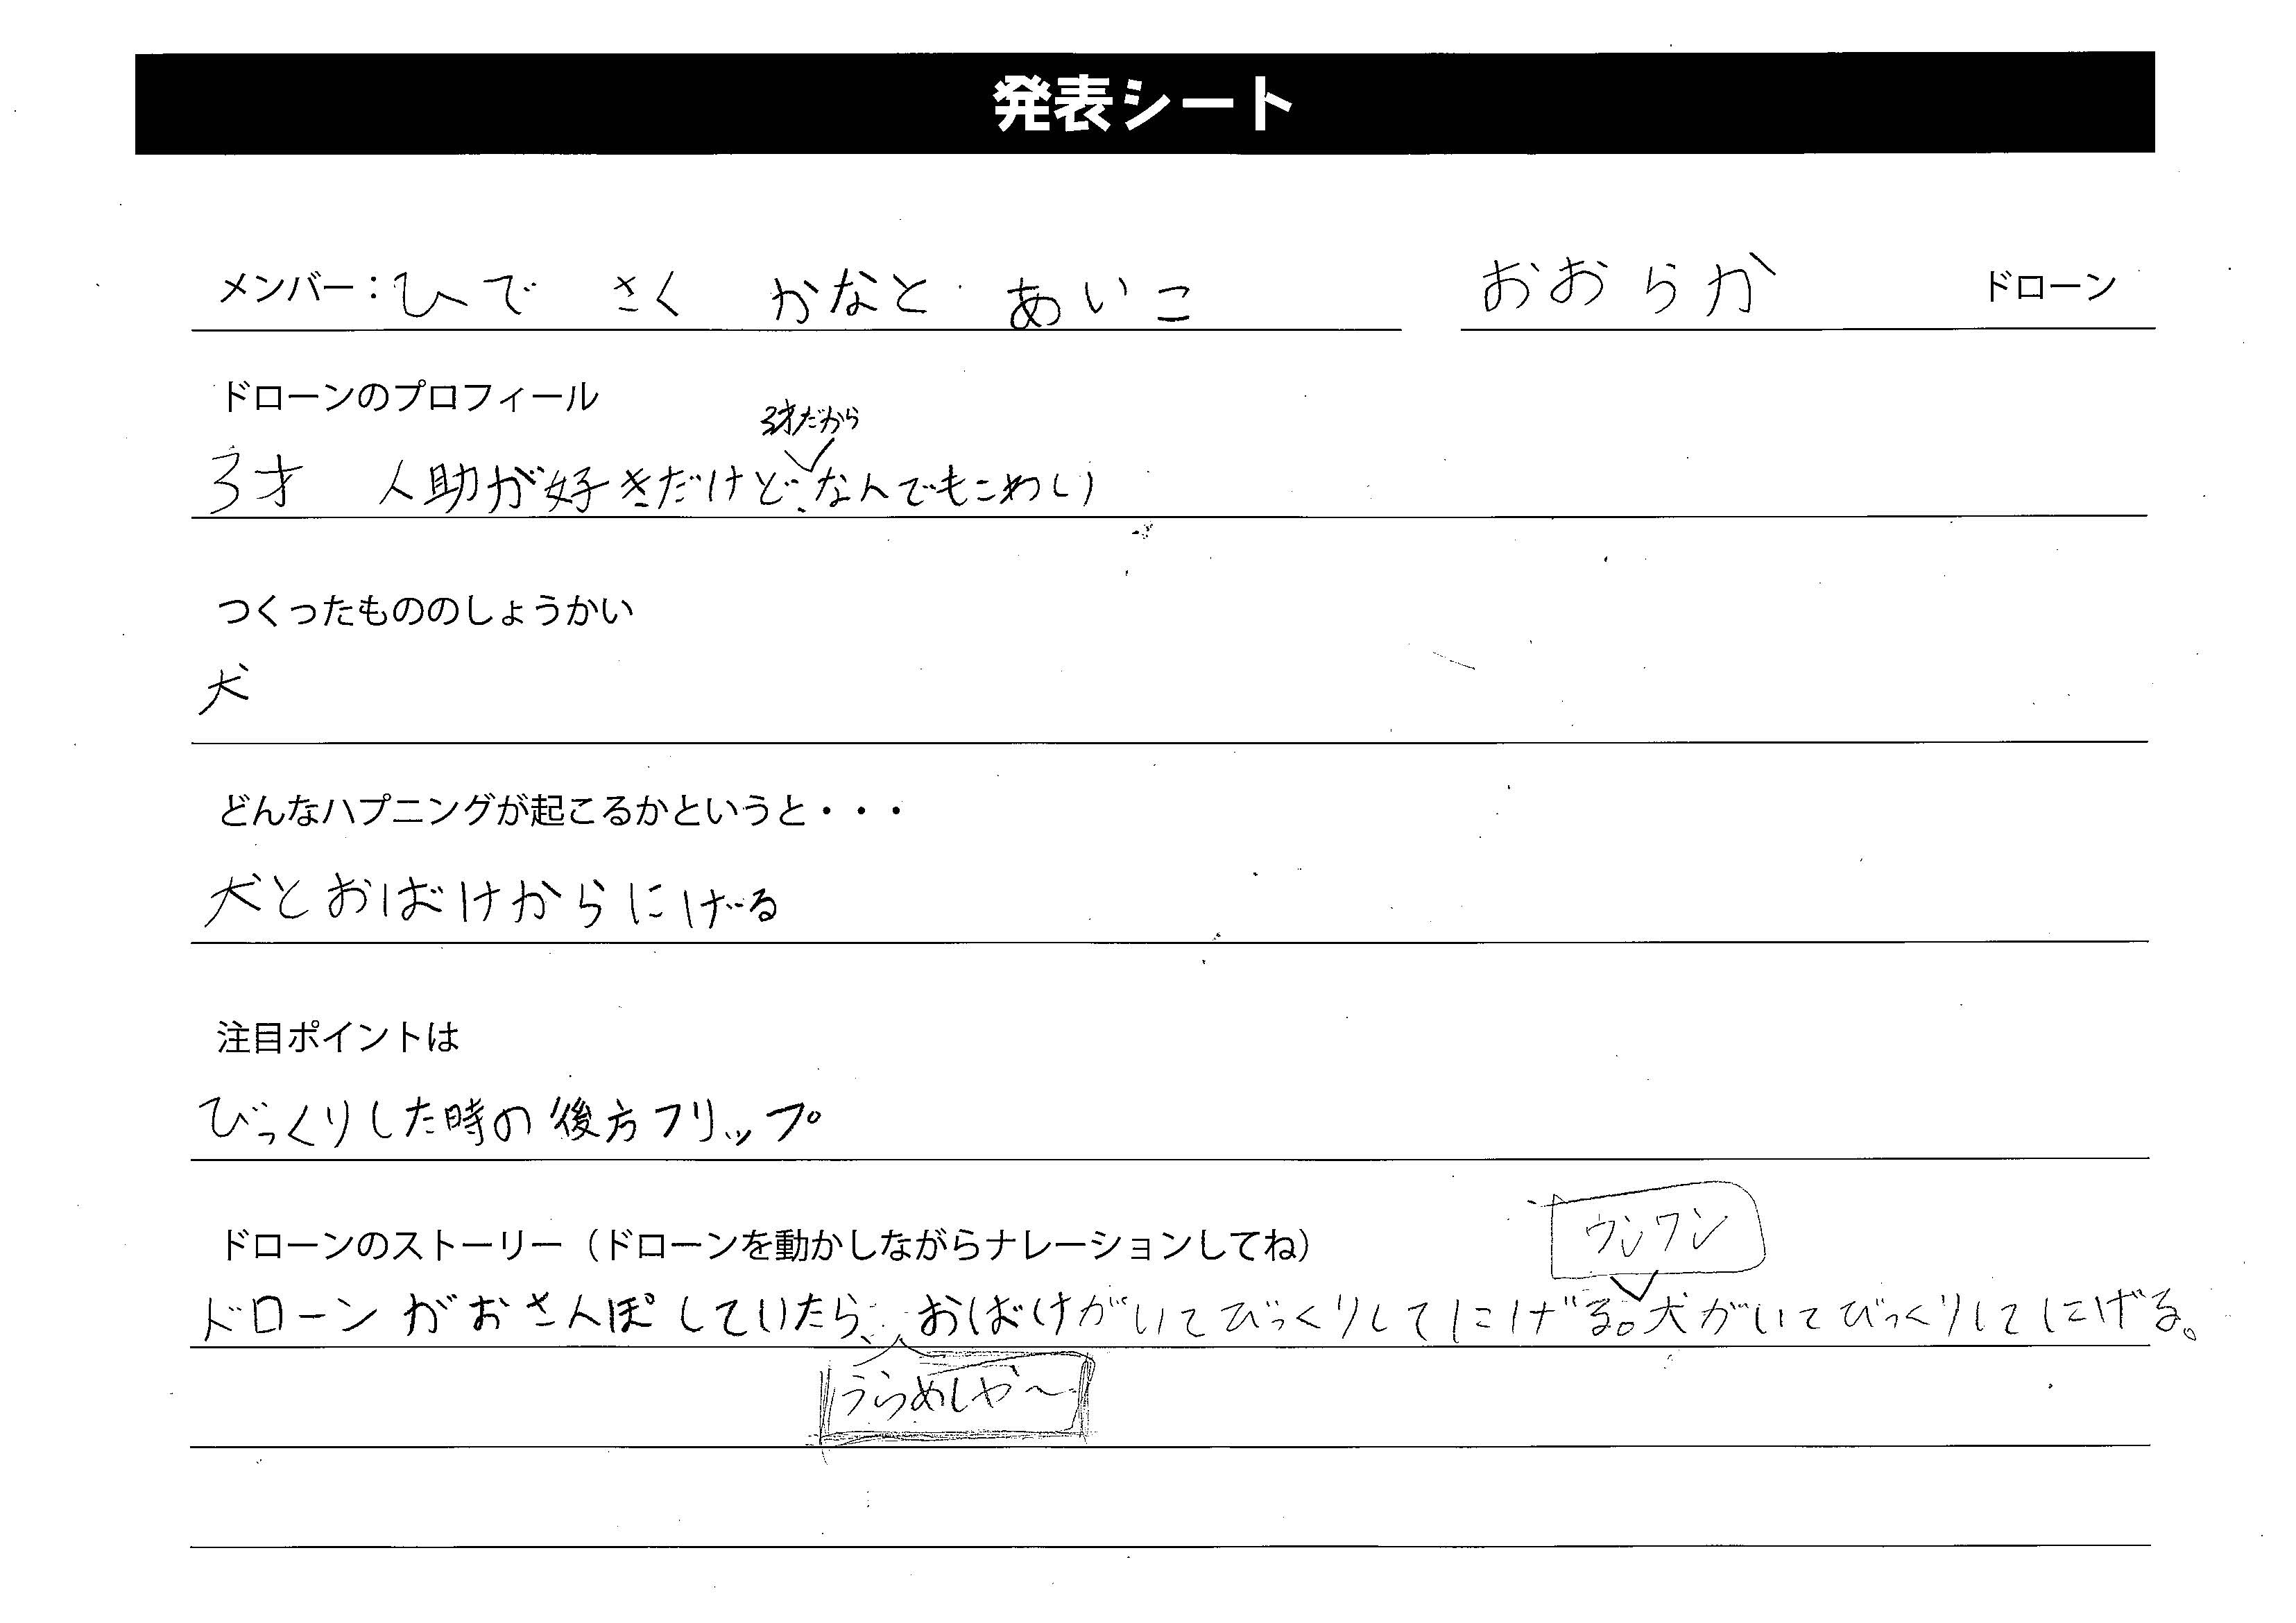 発表シート
メンバー：ひで さく かなと あいこ おおらか ドローン
ドローンのプロフィール
3才だから
3才 人助が好きだけど、なんでもこわい
つくったもののしょうかい
犬
どんなハプニングが起こるかというと・・・
犬とおばけからにげる
注目ポイントは
びっくりした時の後方フリップ
ドローンのストーリー（ドローンを動かしながらナレーションしてね）
ワンワン
ドローンがおさんぽしていたら、おばけがいてびっくりしてにげる。犬がいてびっくりしてにげる。
うらめしや〜